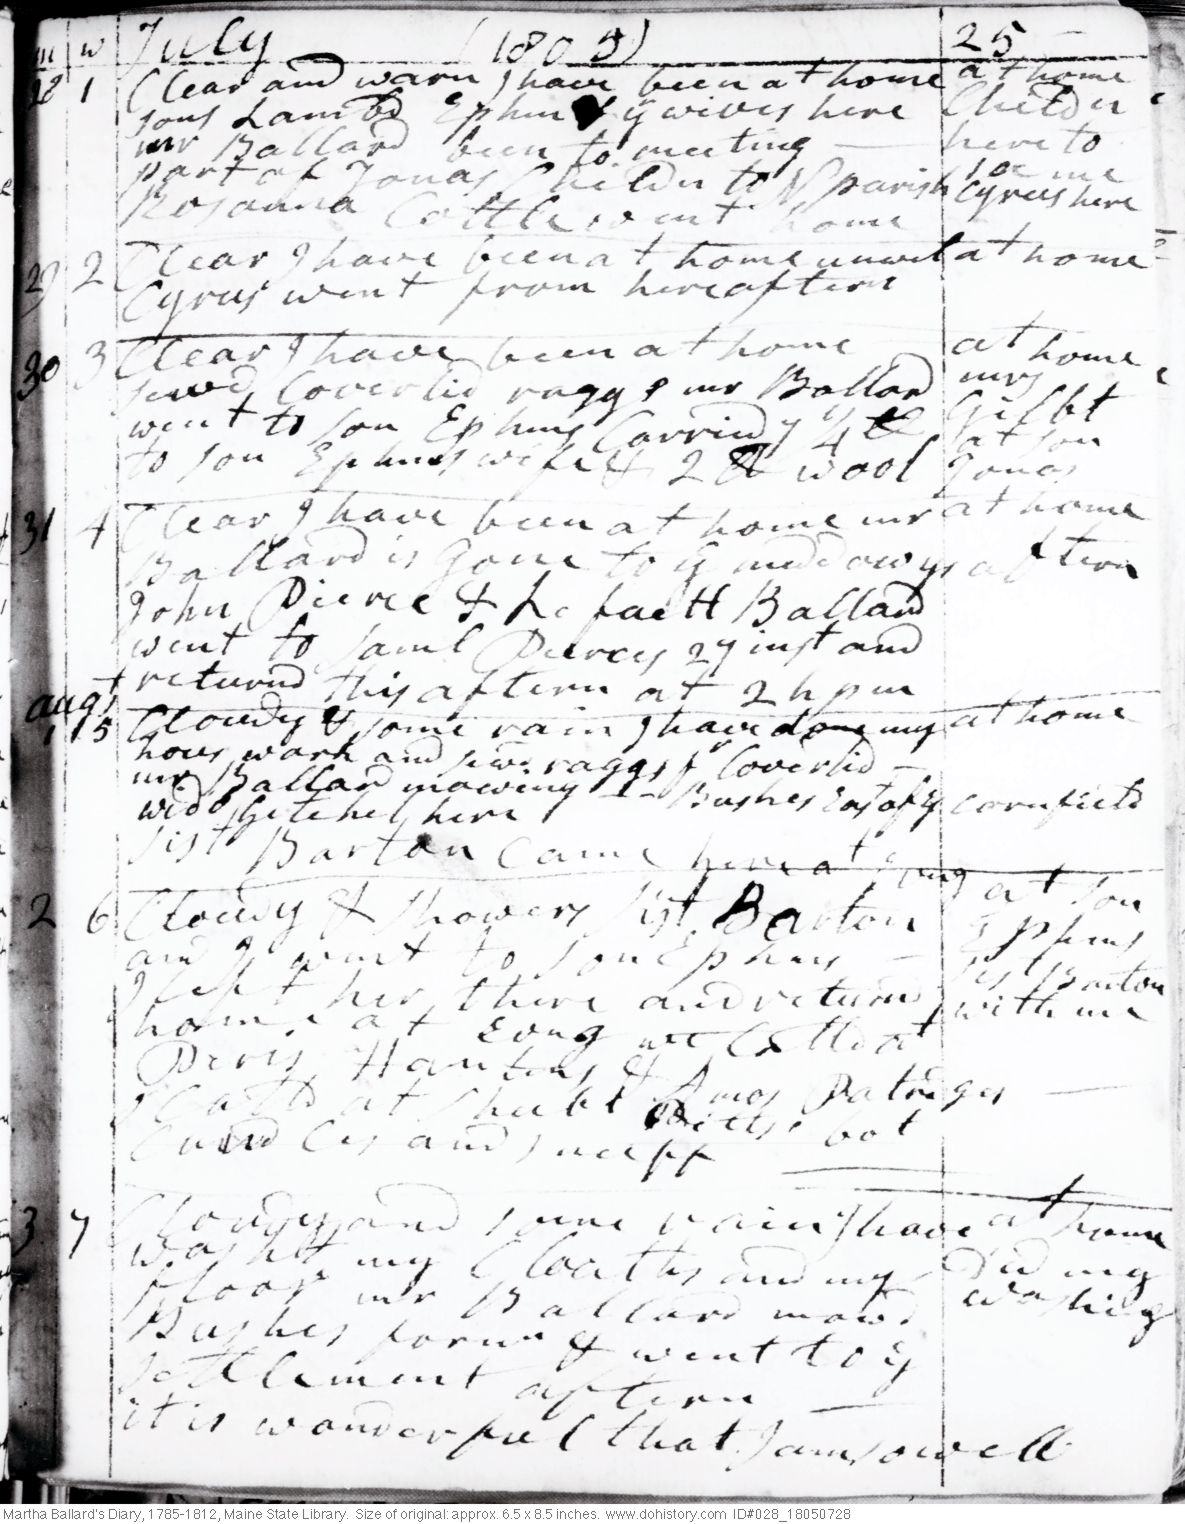 m w July (1805) 25
28 1 Clear and warm I have been at home at home
sons Lambd Ephm & y wives here Childn
mr Ballard been to meeting here to
part of Jonas Childn to N parish see me
Rosanna Cottle went home Cyrus here
29 2 Clear I have been at home unwel at home
Cyrus went from here aftern
30 3 Clear I have been at home at home
sewd Coverlid raggs mr Ballard mrs
went to son Ephms Carried y 4 lb Gilbt
to son Ephms wife & 2 lb wool at son
Jonas
31 4 Clear I have been at home mr at home
Ballard is gone to y meddowgs aftern
John Pierce & Lafaett Ballard
went to Saml Pierces 29 inst and
returnd this aftern at 2 h pm
augst
1 5 Cloudy & some rain I have done my at home
hous work and sewd raggs fr Coverlid
mr Ballard mowing Bushes East of y cornfield
wido Getchel here
sist Barton Came here at Evng
2 6 Cloudy & showers sist Barton at son
and I went to son Ephms Ephms
I left her there and returnd sist Barton
home at Evng we Calld at with me
Peres Hamtens & Amos Patridges
and at Shubl Pitts, bot
Cand les and snuff
3 7 Cloudy and some rain I have at home
washt my Cloaths and my Did my
floor mr Ballard mowd washing
Bushes forn & went to y
settlement aftern
it is wonderful that I am so well
Martha Ballard's Diary, 1785-1812, Maine State Library. Size of original: approx. 6.5 x 8.5 inches. www.dohistory.com ID#028_18050728